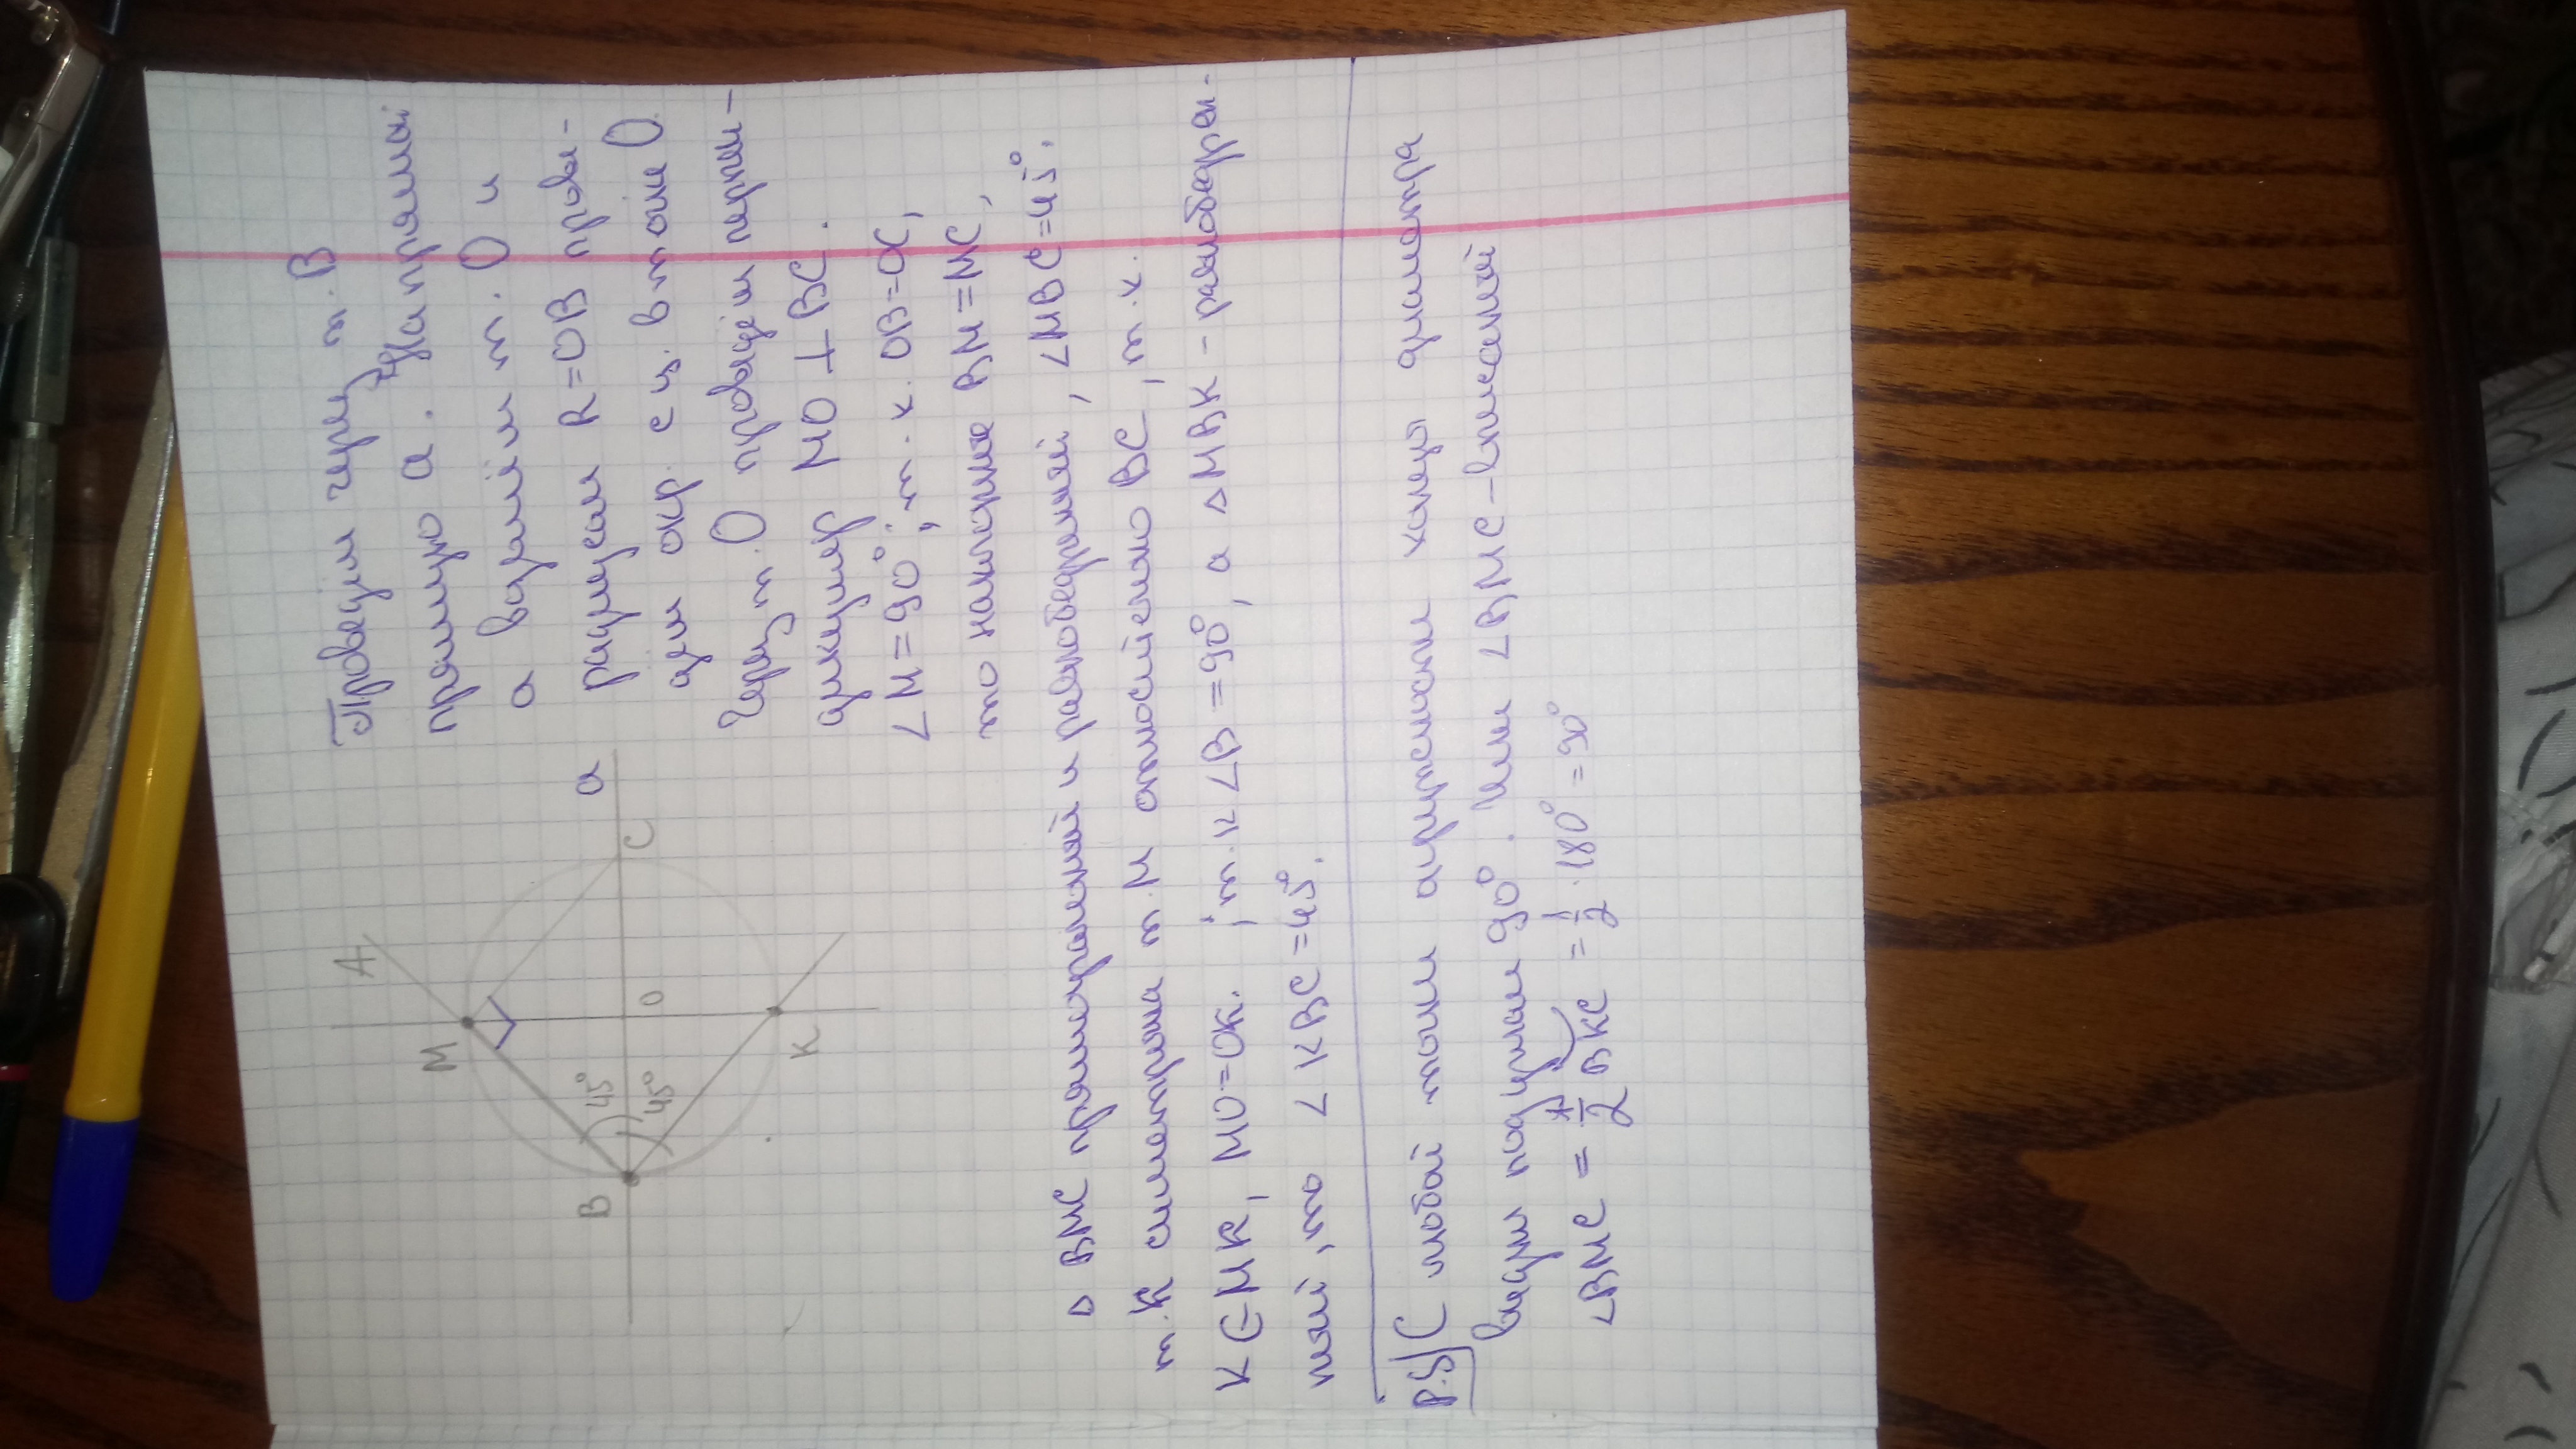 Проведём через т. B
прямую a. На прямой
a возьмём т. O и
радиусом R=OB прове-
дём окр. с ц. в точке O.
Через т. O проведём перпен-
дикуляр MO ⊥ BC.
∠M=90°, т. к. OB=OC,
то наклонные BM=MC,
△ BMC прямоугольный и равнобедренный, ∠MBC=45°.
т. K симметрична т. M относительно BC, т. к.
K ∈ MK, MO=OK. т. к ∠B=90°, а △ MBK - равнобедрен-
ный, то ∠ KBC=45°.
P.S С любой точки окружности концы диаметра
видны под углом 90°. Или ∠BMC - вписанный
∠BMC = 1/2 BKC = 1/2 · 180° = 90°
A
M
a
45°
45°
B
O
C
K